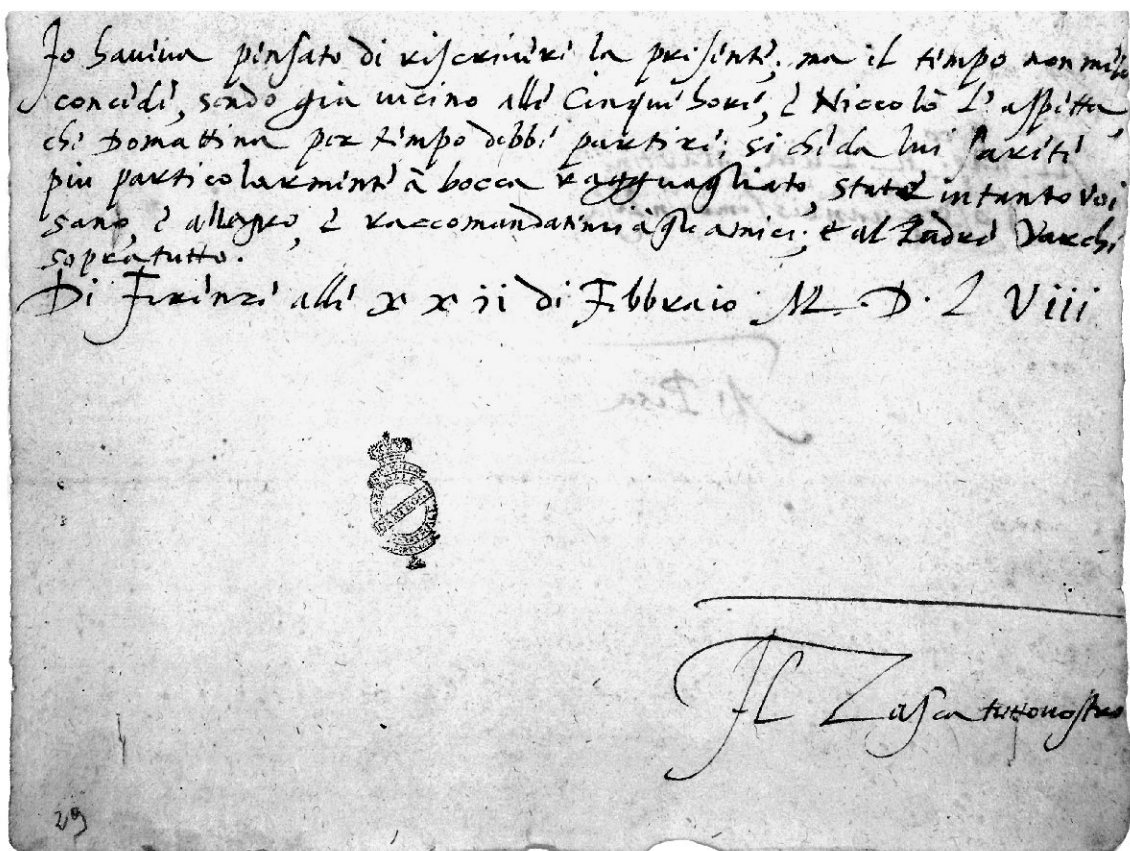 Io haveva pensato di riscrivere la presente; ma il tempo non melo
concede, sendo gia vicino alle Cinque hore, e Niccolò l'aspetta,
che Domattina per tempo debbe partire; si che da lui sarete
piu particolarmente à bocca ragguagliato, state intanto voi
sano, e allegro, e raccomandatemi agli amici; et al Padre Varchi
sopratutto.
Di Firenze alle xxii di Febbraio M. D. L Viii
A Pisa
Il Lasca tutto vostro
29